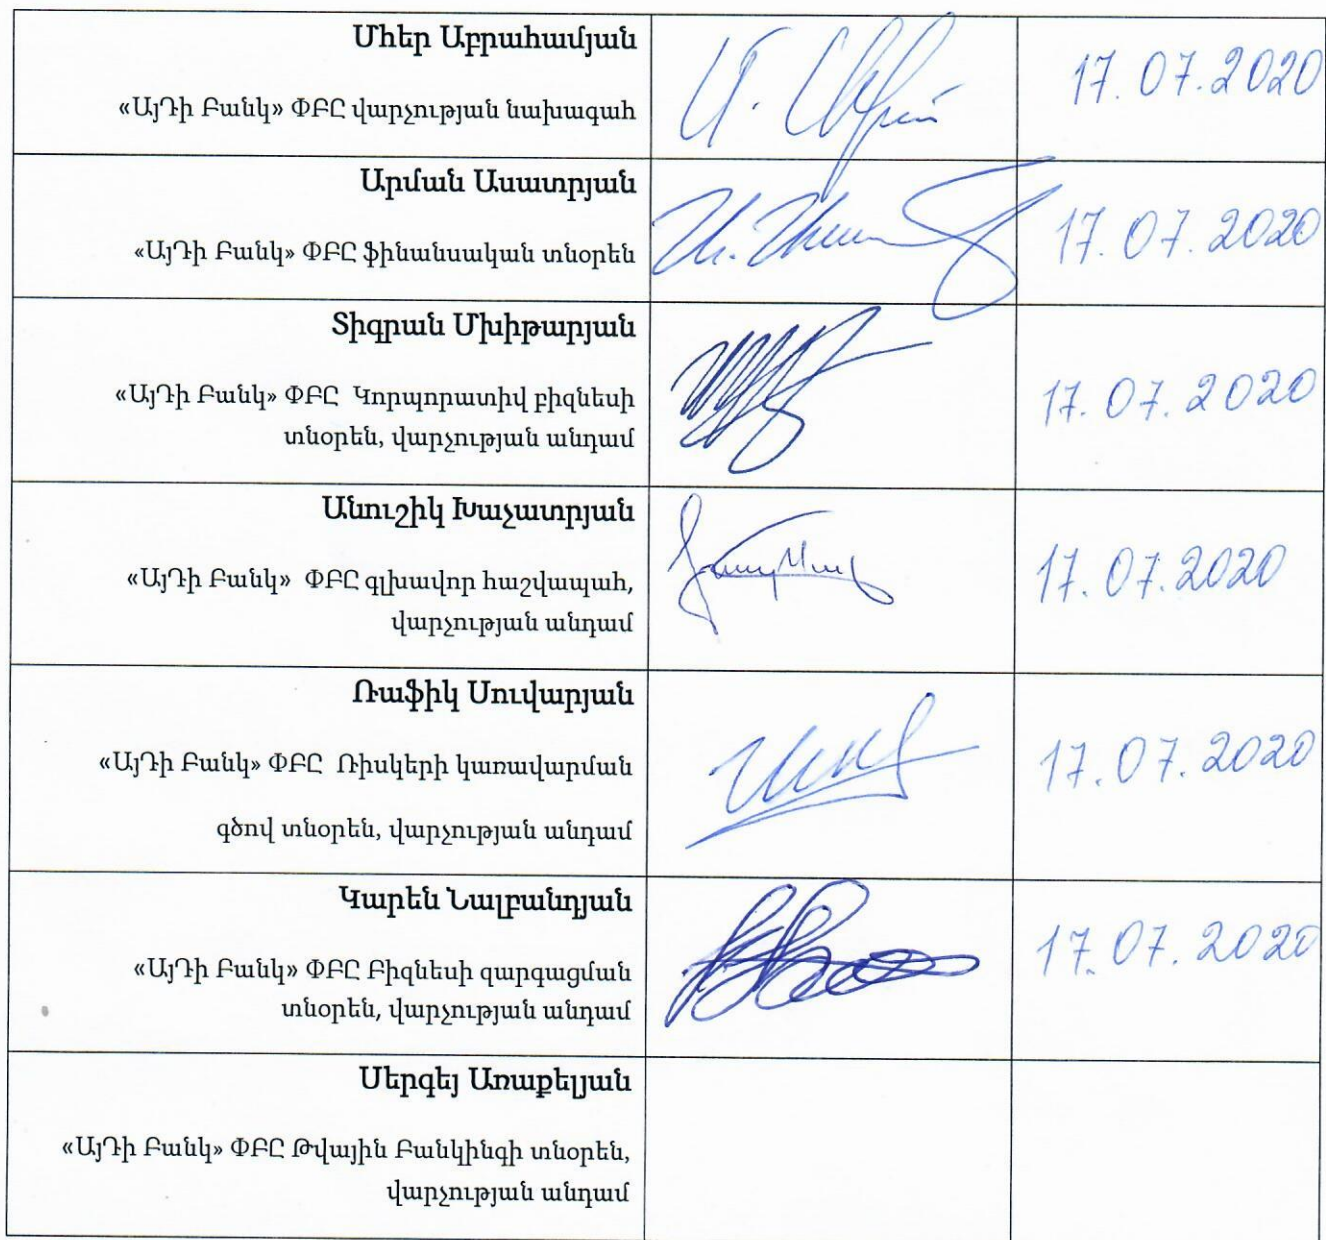 Մհեր Աբրահամյան
«ԱյԴի Բանկ» ՓԲԸ վարչության նախագահ
17.07.2020
Արման Ասատրյան
«ԱյԴի Բանկ» ՓԲԸ ֆինանսական տնօրեն
17.07.2020
Տիգրան Մխիթարյան
«ԱյԴի Բանկ» ՓԲԸ Կորպորատիվ բիզնեսի
տնօրեն, վարչության անդամ
17.07.2020
Անուշիկ Խաչատրյան
«ԱյԴի Բանկ» ՓԲԸ գլխավոր հաշվապահ,
վարչության անդամ
17.07.2020
Ռաֆիկ Սուվարյան
«ԱյԴի Բանկ» ՓԲԸ Ռիսկերի կառավարման
գծով տնօրեն, վարչության անդամ
17.07.2020
Կարեն Նալբանդյան
«ԱյԴի Բանկ» ՓԲԸ Բիզնեսի զարգացման
տնօրեն, վարչության անդամ
17.07.2020
Սերգեյ Առաքելյան
«ԱյԴի Բանկ» ՓԲԸ Թվային Բանկինգի տնօրեն,
վարչության անդամ